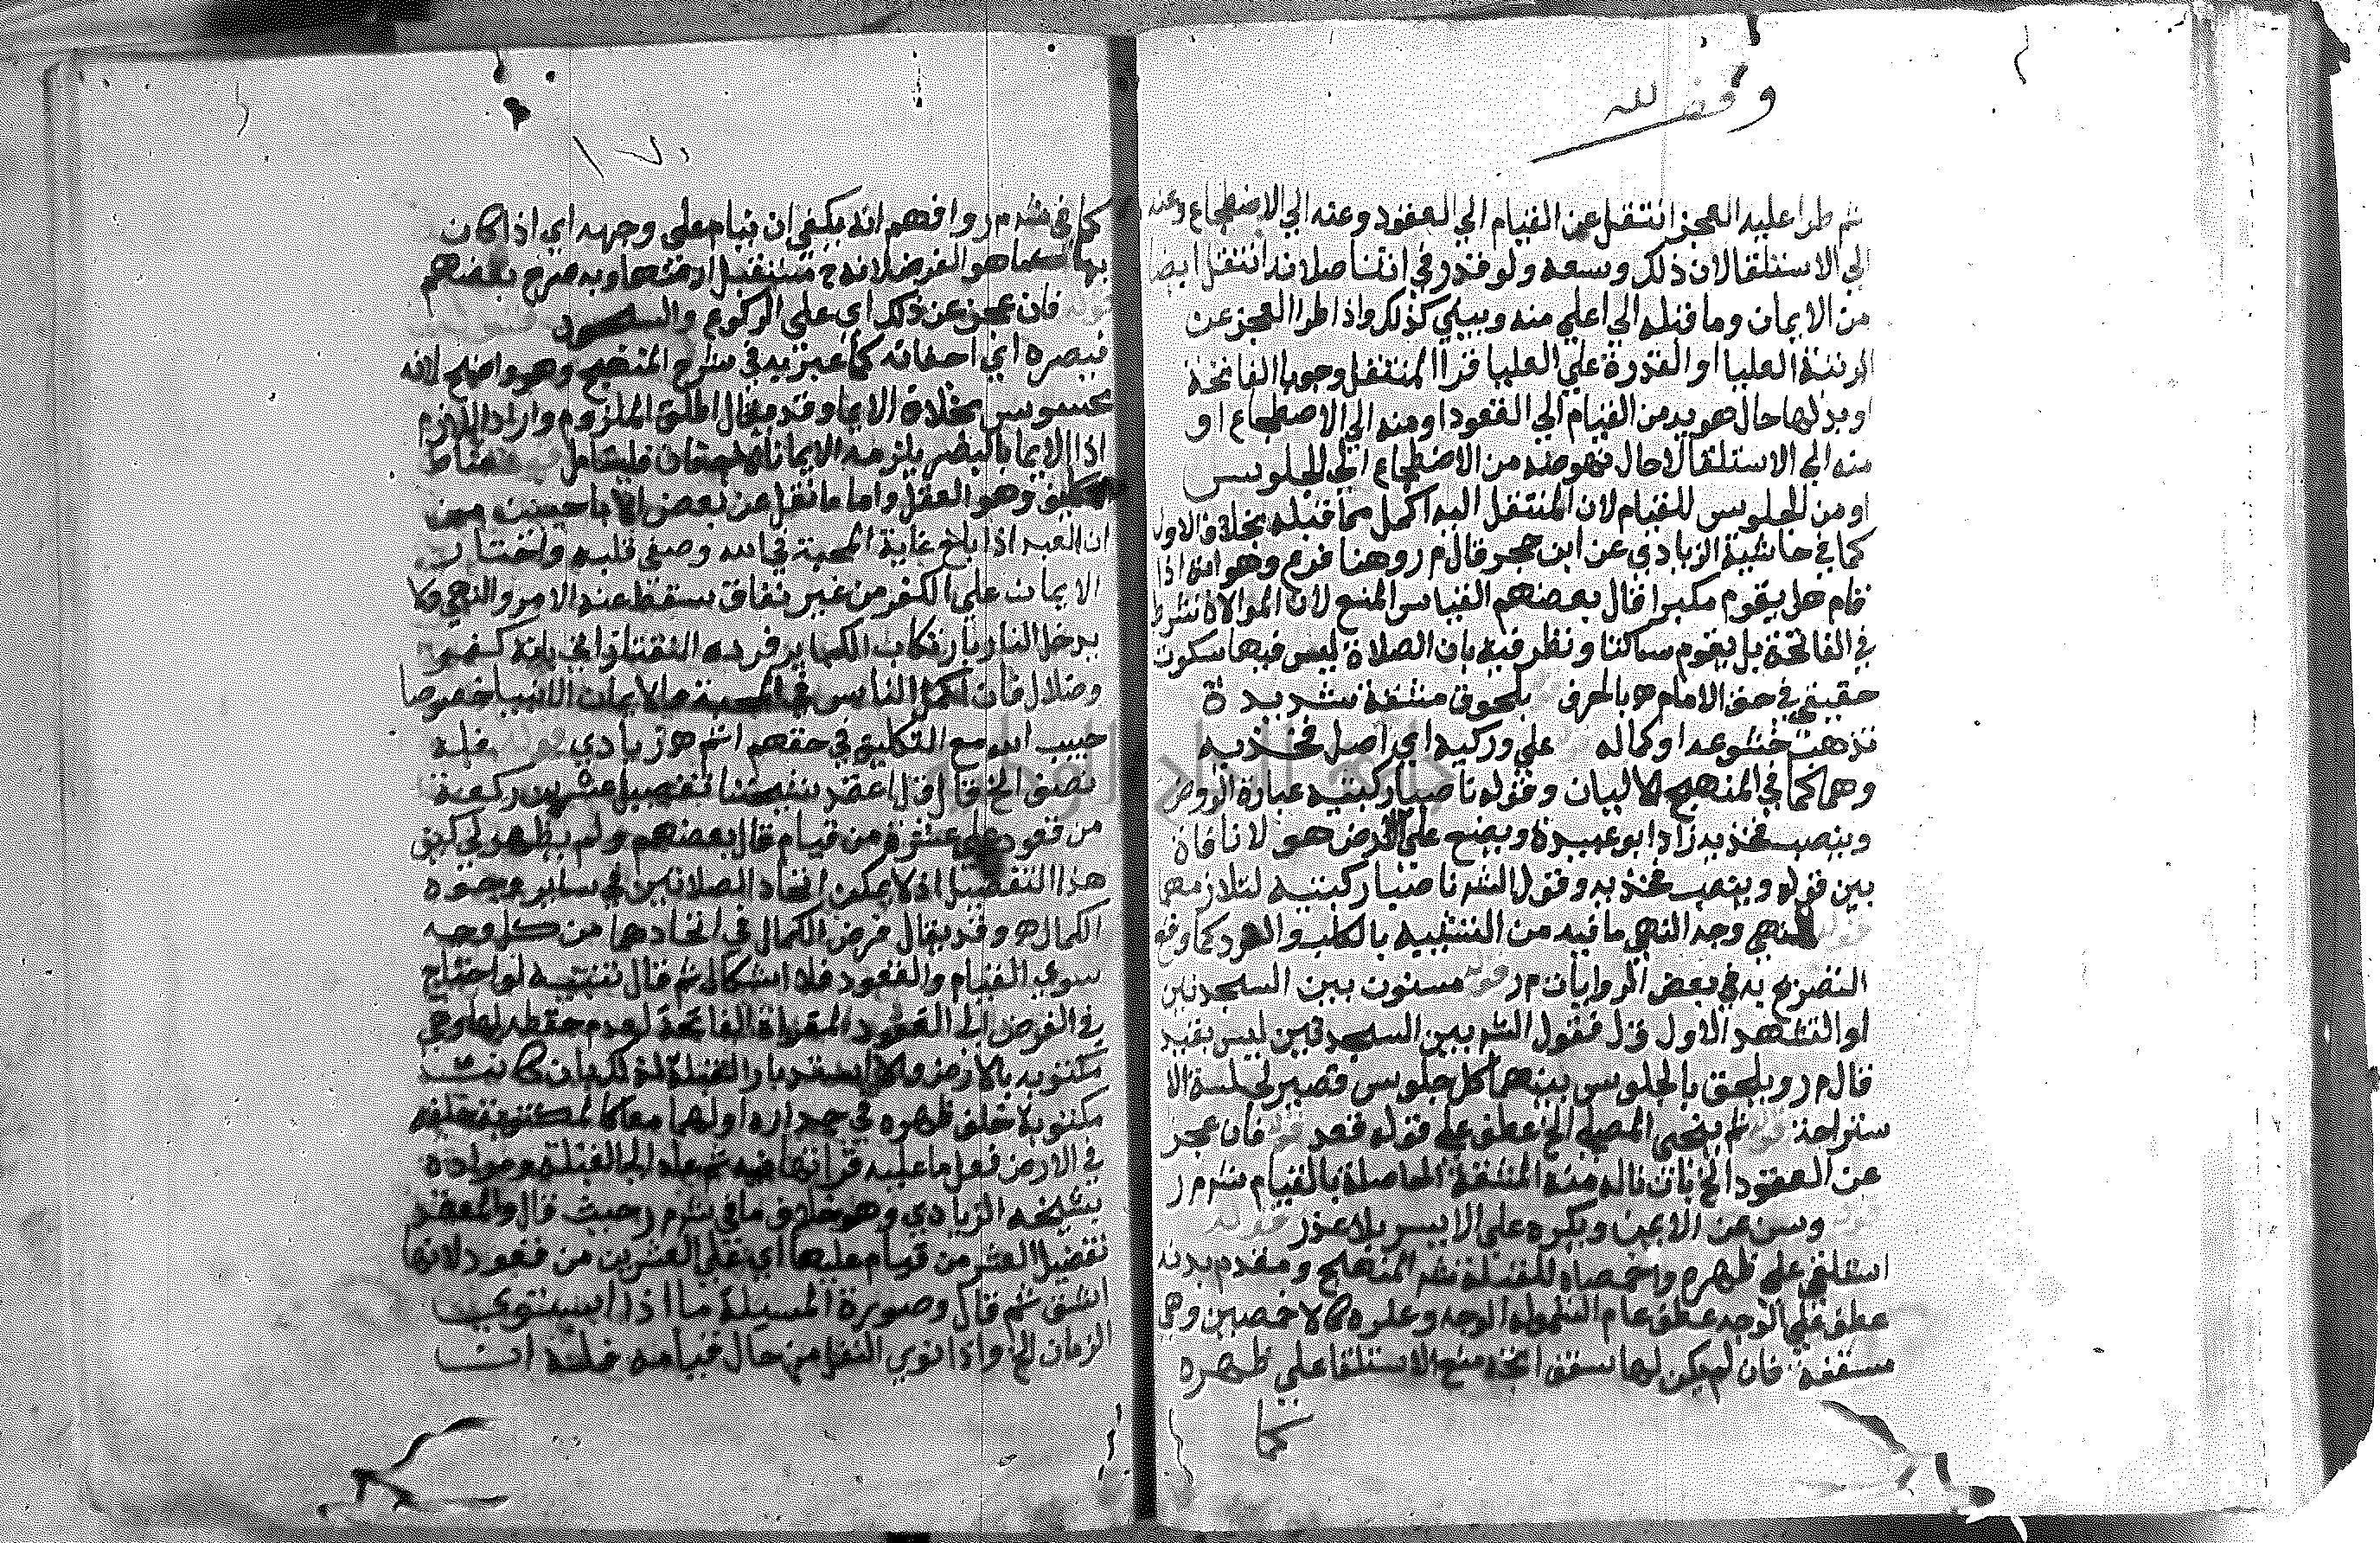 وقف لله
ثم طرا عليه العجز انتقل عن القيام الي القعود وعنه الي الاضطجاع وعنه
الي الاستلقا لان ذلك وسعه ولو قدر في اثنا صلاته انتقل ايضا
من الايمان وما قبله الي اعلي منه ويبني كذلك واذا طرا العجز عن
الرتبة العليا او القدرة علي العليا قرا المنتقل وجوبا الفاتحة
او بدلها حال هويه من القيام الي القعود او منه الي الاضطجاع او
منه الي الاستلقا لا حال نهوضه من الاضطجاع الي الجلوس
او من الجلوس للقيام لان المنتقل اليه اكمل مما قبله بخلاف الاول
كما في حاشية الزيادي عن ابن حجر قال م ر وهنا فرع وهو انه اذا
قام هل يقوم مكبرا قال بعضهم القياس المنع لان الموالاة شرط
في الفاتحة بل يقوم ساكتا ونظر فيه بان الصلاة ليس فيها سكوت
حقيقي في حق الامام بالحرف بلحوق مشقة شديدة
تذهب خشوعه او كماله علي وركيه اي اصل فخذيه
وهما كما في المنهج الاليان وقوله ناصبا ركبتيه عبارة الروض
وينصب فخذيه زاد ابو عبيدة ويضع علي الارض هو لا نافاة
بين قوله وينصب فخذيه وقول الش ناصبا ركبتيه لتلازمهما
قوله للنهي وجه النهي ما فيه من التشبيه بالكلب والقرد كما وقع
التصريح به في بعض الروايات م ر قوله مسنون بين السجدتين
او التشهد الاول ق ل فقول الش بين السجدتين ليس بقيد
قال م ر ويلحق بالجلوس بينهما كل جلوس قصير كجلسة الا
ستراحة قوله ثم ينحني المصلي الخ عطف علي قوله قعد قوله فان عجز
عن القعود الخ بان ناله منه المشقة الحاصلة بالقيام ش م ر
قوله وسن عن الايمن ويكره علي الايسر بلا عذر قوله
استلقي علي ظهره واخمصاه للقبلة ش المنهج ومقدم بدنه
عطف علي الوجه عطف عام لشموله الوجه وغيره كالاخمصين وهي
مسقفة فان لم يكن لها سقف اتجه منع الاستلقا علي ظهره
كما
١٧٠
كما في ش م ر وافهم انه يكفي ان قيام علي وجهه اي اذا كان
بها هو الفرض لانه ح مستقبل وبه صرح بعضهم
قوله فان عجز عن ذلك اي علي الركوع والسجود
فبصره اي اجفانه كما عبر به في شرح المنهج وهو واضح لانه
محسوس بخلاف الايما وقد يقال اطلق الملزوم واراد اللازم
اذ الايما بالبصر يلزمه الايما بالاجفان فليتامل مناط
التكليف وهو العقل واما ما نقل عن بعض الاباحيين من
ان العبد اذا بلغ غاية المحبة في الله وصفي قلبه واختار
الايمان علي الكفر من غير نفاق سقط عنه الامر والنهي ولا
يدخل النار بارتكاب الكباير فرده التفتازاني بانه كفر
وضلال فان اكمل الناس في المحبة والايمان الانبيا خصوصا
حبيب الله مع التكليف في حقهم اتم هو زيادي قوله فله
نصف الخ قال ق ل اعتمد شيخنا تفضيل عشرين ركعة
من قعود علي عشرة من قيام قال بعضهم ولم يظهر لي كون
هذا التفضيل اذ لا يمكن اتحاد الصلاتين في ساير وجوه
الكمال وقد يقال فرض الكمال في اتحادهما من كل وجه
سوي القيام والقعود فلا اشكال ثم قال تنبيه لو احتاج
في الفرض الي القعود لقراة الفاتحة لعدم حفظه لها وهي
مكتوبة بالارض ولا استدبار القبلة لذلك بان كانت
مكتوبة خلف ظهره في جداره اولهما معا كالمكتوبة خلفه
في الارض فعل ما عليه قراتها فيه ثم عاد الي القبلة ومراده
بشيخه الزيادي وهو خلاف ما في ش م ر حيث قال والمعتمد
تفضيل العشر من قيام عليها اي علي العشرين من قعود لانها
اشق ثم قال وصورة المسيلة ما اذا استوي
الزمان الخ واذا نوي النفل من حال قيامه فله ان